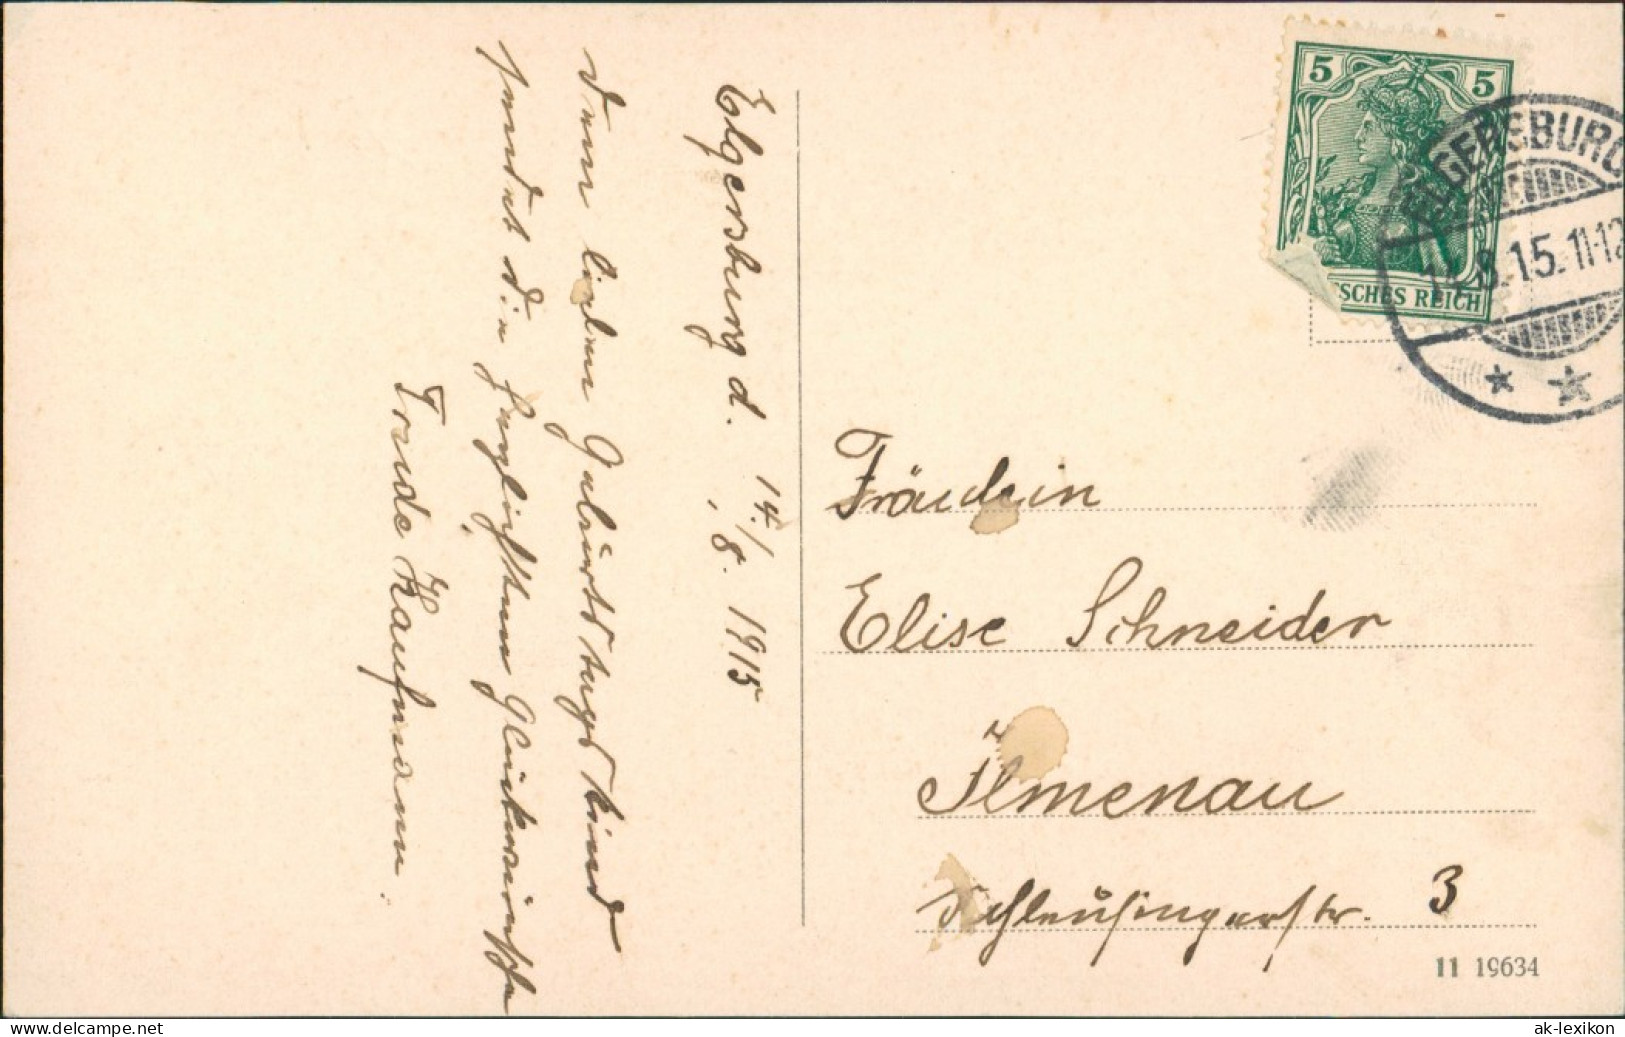 Elgersburg d. 14./8. 1915
Dem lieben Geburtstagskind
sendet die herzlichsten Glückwünsche
Trude Kaufmann.
5 5
SCHES REICH
ELGERSBURG
14.8.15.11-12
Fräulein
Elise Schneider
Ilmenau
Schleusingerstr. 3
11 19634
www.delcampe.net
ak-lexikon